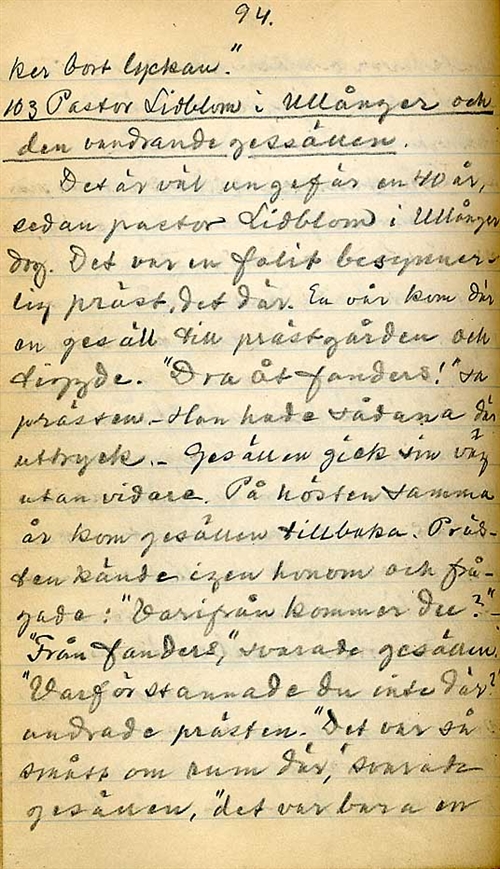 94.
ker bort lyckan."
103 Pastor Lidblom i Ullånger och
den vandrande gesällen.
Det är väl ungefär en 40 år,
sedan pastor Lidblom i Ullånger
dog. Det var en falit besynner-
lig präst, det där. En vår kom där
en gesäll till prästgården och
tiggde. "Dra åt fanders!" sa
prästen. - Han hade sådana där
uttryck. - Gesällen gick sin väg
utan vidare. På hösten samma
år kom gesällen tillbaka. Präs-
ten kände igen honom och frå-
gade: "Varifrån kommer du?"
"Från fanders," svarade gesällen.
"Varför stannade du inte där?"
undrade prästen. "Det var så
smått om rum där," svarade
gesällen, "det var bara en